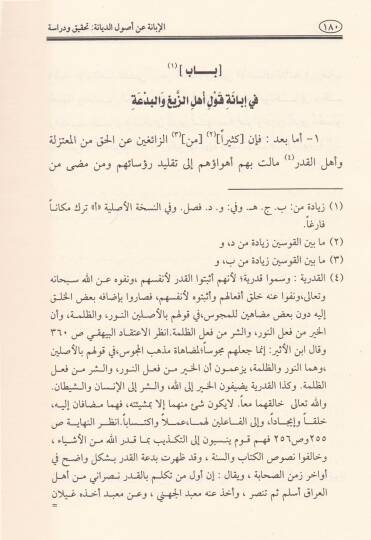 ١٨٠ الإبانة عن أصول الديانة: تحقيق ودراسة
[بـــاب] (١)
في إبانةِ قَوْلِ أهلِ الزَّيغِ وَالبِدْعَةِ
١- أما بعد : فإن [كثيراً](٢) [من](٣) الزائغين عن الحق من المعتزلة
وأهل القدر(٤) مالت بهم أهواؤهم إلى تقليد رؤسائهم ومن مضى من
(١) زيادة من: ب. ج. هـ. وفي: و. د. فصل. وفي النسخة الأصلية «أ» ترك مكاناً
فارغاً.
(٢) ما بين القوسين زيادة من د، و
(٣) ما بين القوسين زيادة من ب، و
(٤) القدرية : وسموا قدرية؛ لأنهم أثبتوا القدر لأنفسهم ،ونفوه عن الله سبحانه
وتعالى،ونفوا عنه خلق أفعالهم وأثبتوه لأنفسهم، فصاروا بإضافه بعض الخلق
إليه دون بعض مضاهين للمجوس،في قولهم بالأصلين النور، والظلمة، وأن
الخير من فعل النور، والشر من فعل الظلمة.انظر الاعتقاد البيهقي ص ٣٦٠
وقال ابن الأثير: إنما جعلهم مجوساً؛لمضاهاة مذهب المجوس،في قولهم بالأصلين
،وهما النور والظلمة، يزعمون أن الخيـر من فعـل النـور، والشر من فعـل
الظلمة. وكذا القدرية يضيفون الخير إلى الله، والشر إلى الإنسان والشيطان.
والله تعالى خالقهما معاً. لايكون شئ منهما إلا بمشيئته، فهما مضافان إليه،
خلقـاً وإيجـاداً، وإلى الفـاعلين لهمـا،عمـلاً واكتسـاباً.انظر النهاية ص
٢٥٥وص٢٥٦ فهـم قوم ينسبون إلى التكذيب بما قدر الله من الأشياء ،
وخالفوا نصوص الكتاب والسنة ، وقد ظهرت بدعة القدر بشكل واضح في
أواخر زمن الصحابة ، ويقال : إن أول من تكلـم بالقدر نصراني من أهـل
العراق أسلم ثم تنصر ، وأخذ عنه معبد الجهني ، وعن معبد أخذه غيلان
=